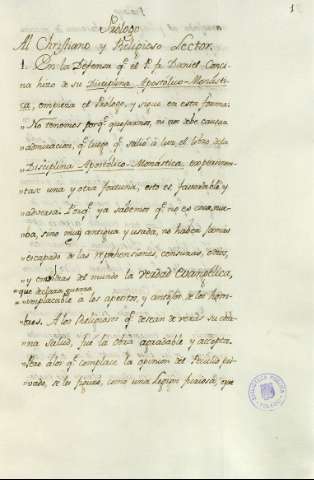 1
Prólogo
Al Christiano y Religioso Lector.
1. En la Defensa q̃ el P. fr. Daniel Conci-
na hizo de su Disciplina Apostólico-Monásti-
ca, empieza el Prólogo, y sigue en esta forma:
„No tenemos porq̃ quejarnos, ni nos debe causar
„admiracion, q̃ luego q̃ salió à luz el libro de la
„Disciplina Apostólico-Monástica, experimen-
„tase una y otra fortuna, esto es favorable y
„adversa. Porq̃ ya sabemos q̃ no es cosa nue-
„ba, sino muy antigua y usada, no haber jamas
„escapado de las reprehensiones, censuras, odios,
„y del mundo la verdad evangélica,
„que declara guerra
„implacable a los apetitos, y antojos de los hom-
„bres. A los Religiosos q̃ desean de veras su eter-
„na salud, fue la obra agradable y accepta.
„Pero à los q̃ complace la opinion del Peculio pri-
„vado, se les figura, como una legion furiosa, que
BIBLIOTECA PUBLICA
TOLEDO